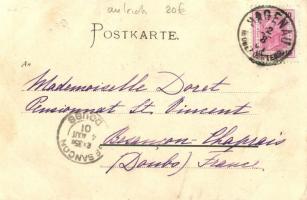 20€
POSTKARTE.
HAGENAU
Mademoiselle Doret
Pensionnat St. Vincent
Besançon-Chaprais
(Doubs) France
BESANCON
DOUBS
AOUT
01